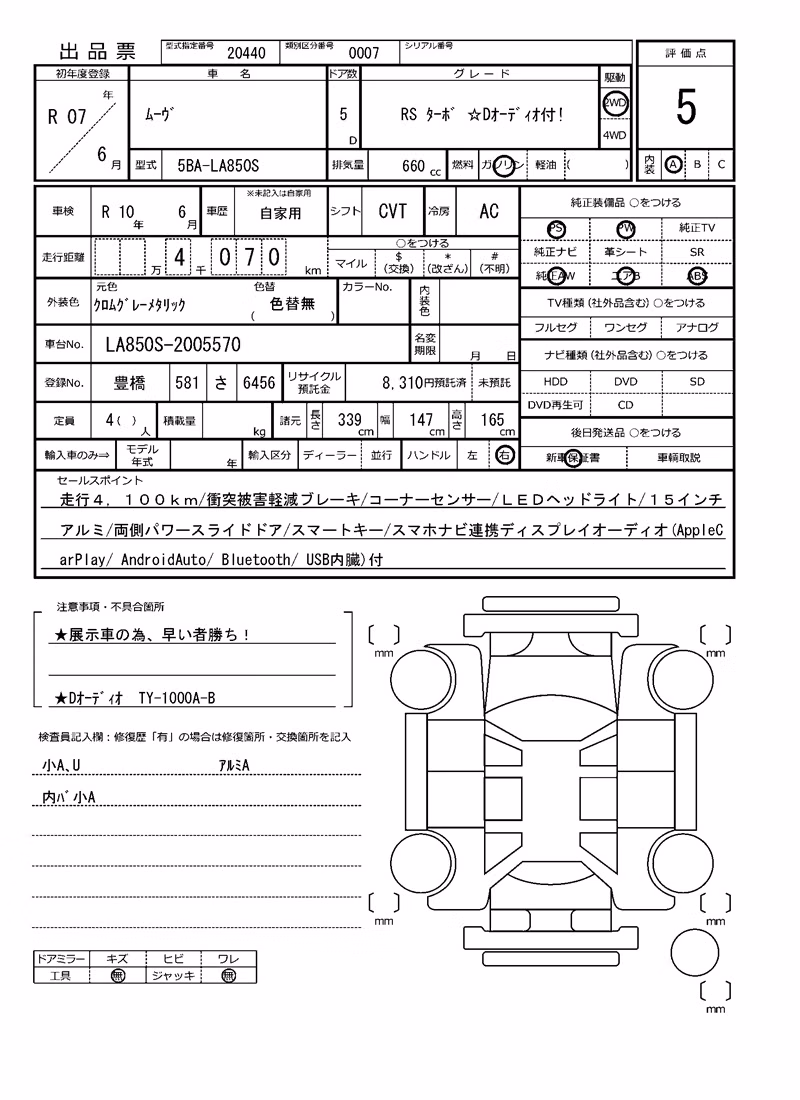 出品票 型式指定番号 20440 類別区分番号 0007 シリアル番号
評価点
初年度登録 車名 ドア数 グレード 駆動
R 07 年 6 月 ムーヴ 5 D RS ターボ ☆Dオーディオ付! 2WD 4WD
5
型式 5BA-LA850S 排気量 660 cc 燃料 ガソリン 軽油 ( )
内装 A B C
車検 R 10 年 6 月 車歴 ※未記入は自家用 自家用 シフト CVT 冷房 AC
純正装備品 ○をつける
PS PW 純正TV
走行距離 万 4 千 0 7 0 km ○をつける
マイル $ (交換) * (改ざん) # (不明)
純正ナビ 革シート SR
純正AW エアB ABS
外装色 元色 クロムグレーメタリック 色替 ( 色替無 ) カラーNo. 内装色
TV種類(社外品含む)○をつける
フルセグ ワンセグ アナログ
車台No. LA850S-2005570 名変期限 月 日
ナビ種類(社外品含む)○をつける
登録No. 豊橋 581 さ 6456 リサイクル預託金 8,310円預託済 未預託
HDD DVD SD
DVD再生可 CD
定員 4( ) 人 積載量 kg 諸元 長さ 339 cm 幅 147 cm 高さ 165 cm
後日発送品 ○をつける
輸入車のみ⇒ モデル年式 年 輸入区分 ディーラー 並行 ハンドル 左 右
新車保証書 車輌取説
セールスポイント
走行4,100km/衝突被害軽減ブレーキ/コーナーセンサー/LEDヘッドライト/15インチ
アルミ/両側パワースライドドア/スマートキー/スマホナビ連携ディスプレイオーディオ(AppleC
arPlay/ AndroidAuto/ Bluetooth/ USB内臓)付
注意事項・不具合箇所
★展示車の為、早い者勝ち!
★Dオーディオ TY-1000A-B
検査員記入欄:修復歴「有」の場合は修復箇所・交換箇所を記入
小A、U アルミA
内バ小A
mm mm
mm mm
mm
ドアミラー キズ ヒビ ワレ
工具 無 ジャッキ 無